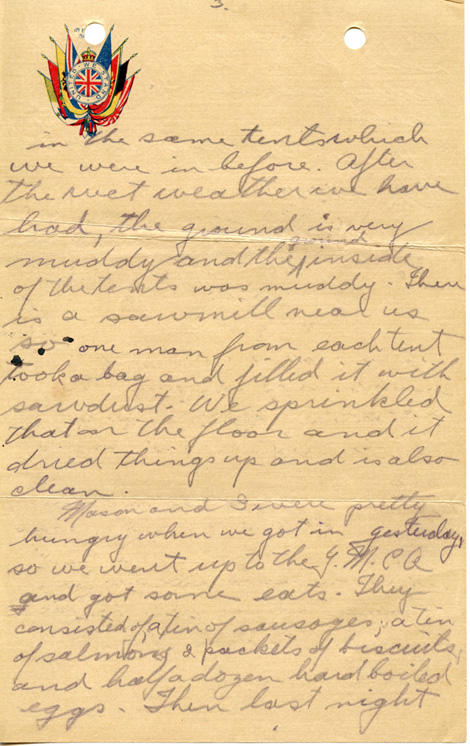 3.
UNITED WE STAND
in the same tents which
we were in before. After
the wet weather we have
had, the ground is very
muddy and the ground inside
of the tents was muddy. There
is a sawmill near us
so one man from each tent
took a bag and filled it with
sawdust. We sprinkled
that on the floor and it
dried things up and is also
clean.
Mason and I were pretty
hungry when we got in yesterday,
so we went up to the Y.M.C.A
and got some eats. They
consisted of, a tin of sausages, a tin
of salmon, 2 packets of biscuits,
and half a dozen hard boiled
eggs. Then last night